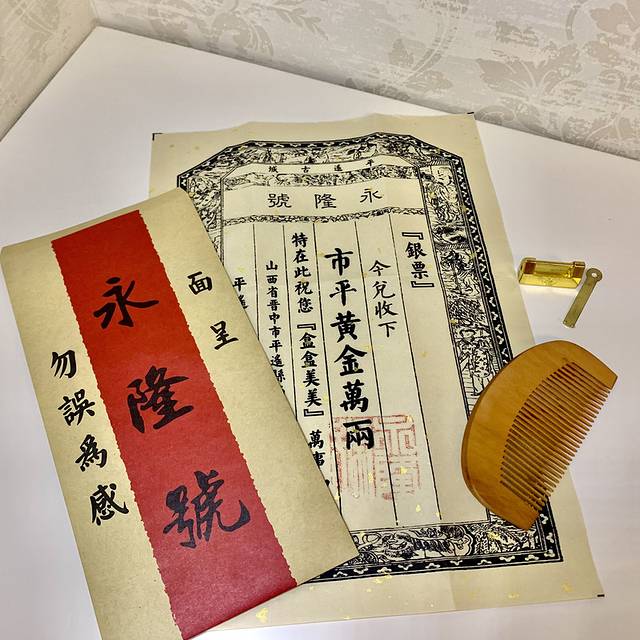 面呈
永隆號
勿誤爲感
平遙古城
永隆號
『銀票』
今兌收下
市平黃金萬兩
特在此祝您『盒盒美美』萬事
山西省晉中市平遙縣
平遙